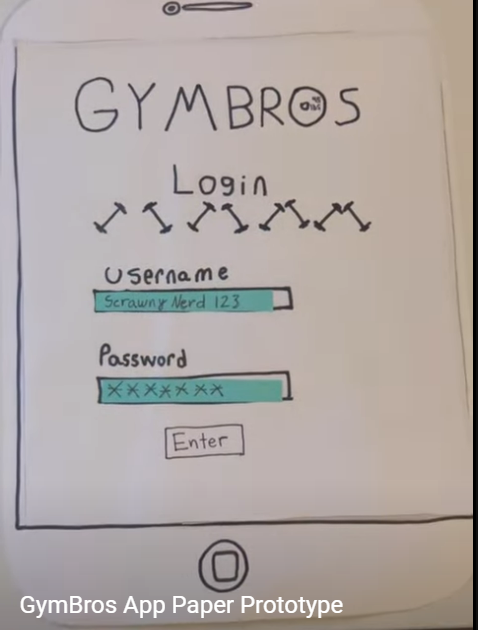 GYMBROS
Login
Username
Scrawny Nerd 123
Password
*******
Enter
GymBros App Paper Prototype